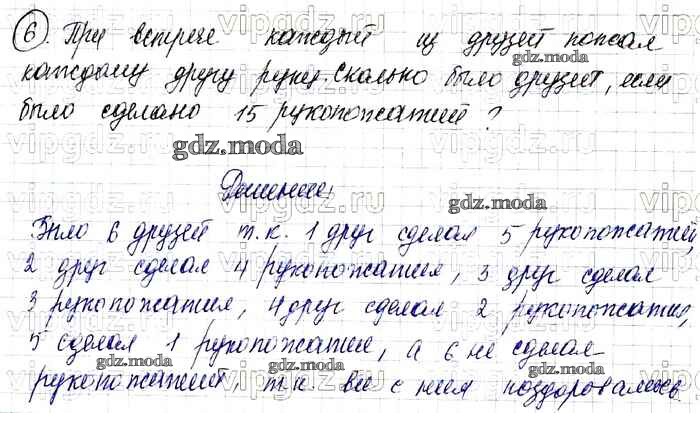 6. При встрече каждый из друзей пожал
каждому другу руку. Сколько было друзей, если
было сделано 15 рукопожатий?
gdz.moda
Решение
Было 6 друзей т.к. 1 друг сделал 5 рукопожатий,
2 друг сделал 4 рукопожатия, 3 друг сделал
3 рукопожатия, 4 друг сделал 2 рукопожатия,
5 сделал 1 рукопожатие, а 6 не сделал
рукопожатий, т.к. все с ним поздоровались.